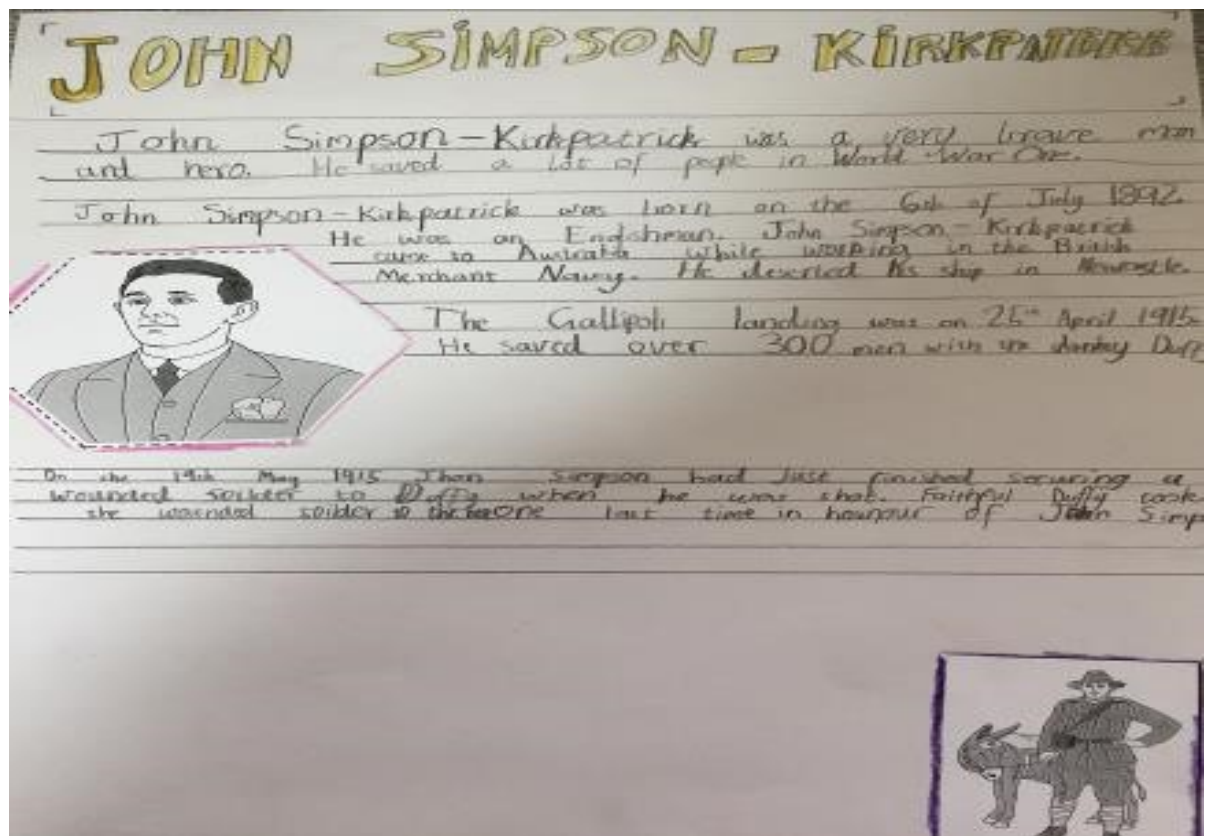 JOHN SIMPSON - KIRKPATRICK
John Simpson-Kirkpatrick was a very brave man
and hero. He saved a lot of peple in World War One.
John Simpson-Kirkpatrick was born on the 6th of July 1892.
He was an Englishman. John Simpson-Kirkpatrick
came to Australia while working in the British
Merchant Navy. He deserted his ship in Newcastle.
The Gallipoli landing was on 25th April 1915.
He saved over 300 men with the donkey Duffy
On the 19th May 1915 Jhon Simpson had just finished securing a
wounded soilder to Duffy when he was shot. Faithful Duffy took
the wounded soilder one last time in hounour of John Simp